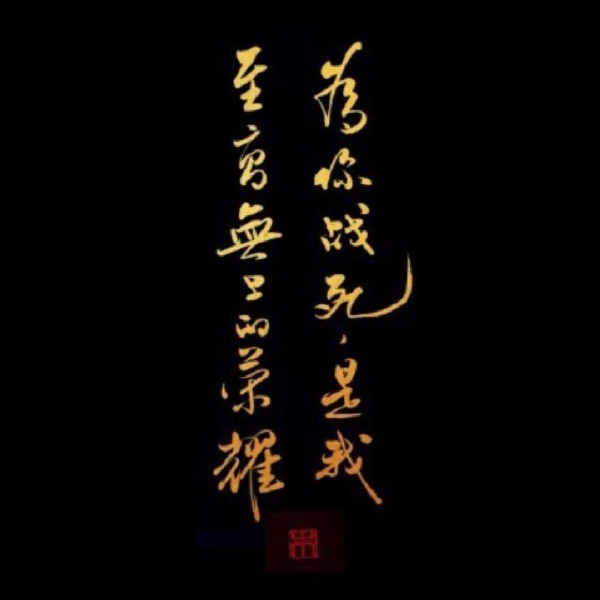 為你战死,是我
至高無上的荣耀